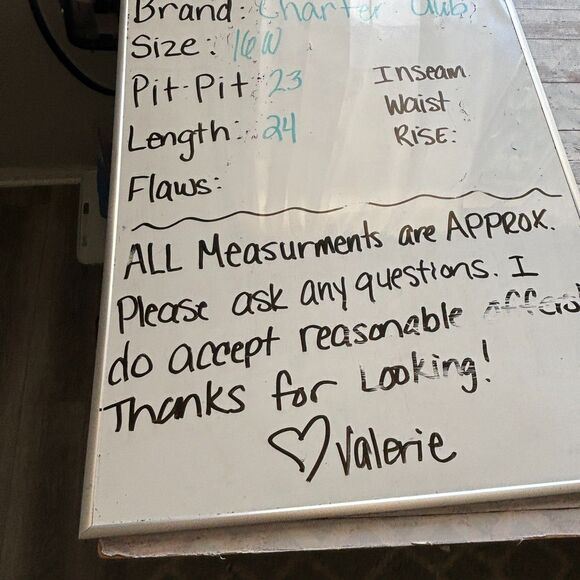 Brand: Charter Club
Size: 16W
Pit-Pit: 23
Inseam
Waist
Length: 24
RISE:
Flaws:
ALL Measurments are APPROX.
Please ask any questions. I
do accept reasonable offers!
Thanks for Looking!
♡ Valerie